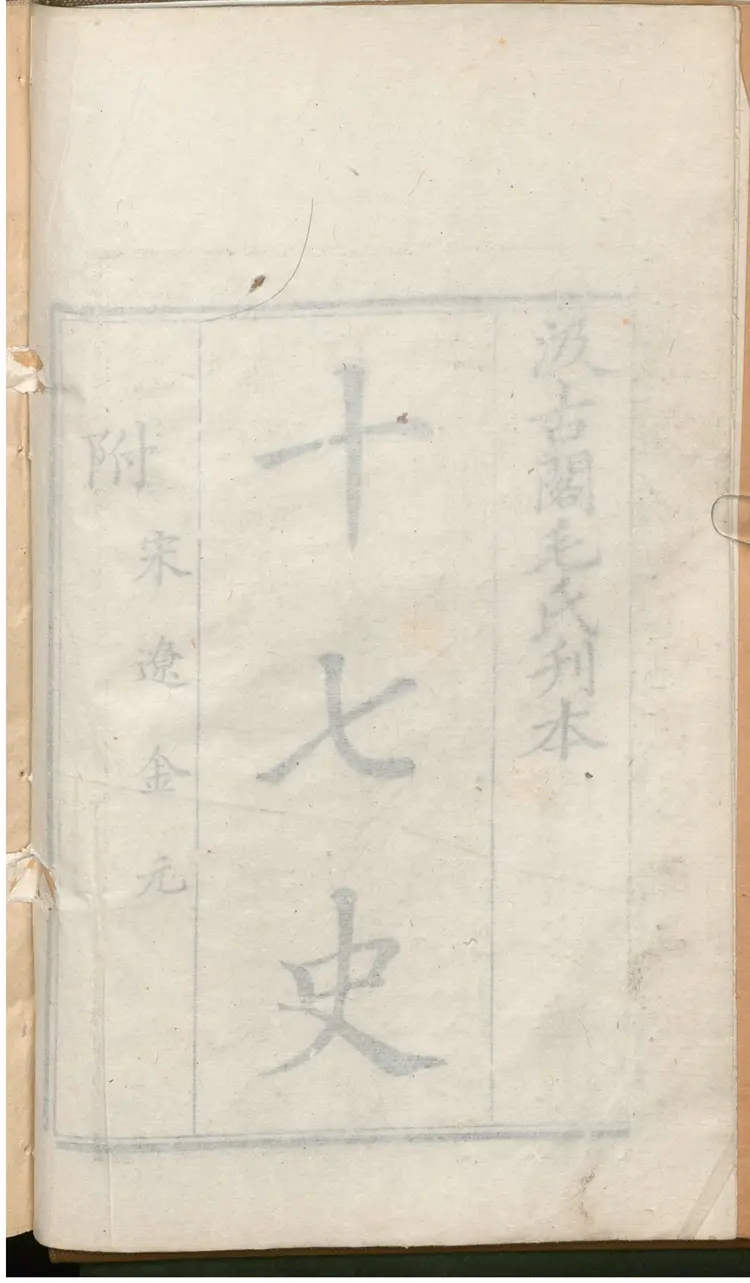 汲古閣毛氏刊本
十七史
附
宋遼金元